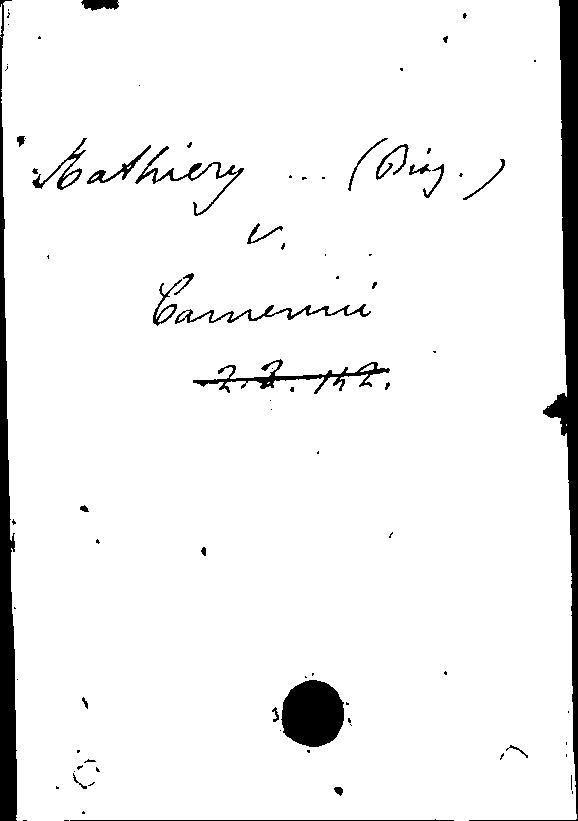 Mathiery ... (Diag.)
v.
Camenni
2.2.142.